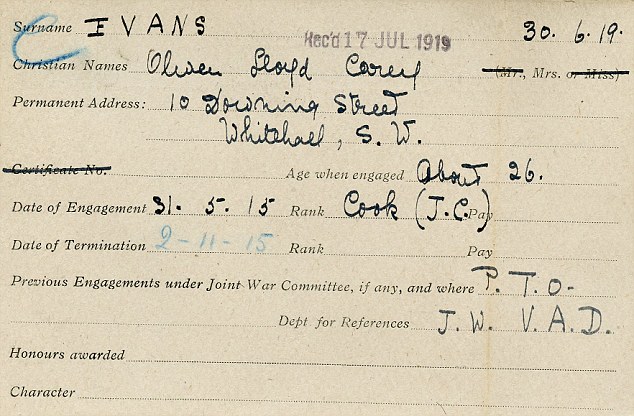 Surname EVANS Rec'd 17 JUL 1919 30. 6. 19.
Christian Names Olwen Lloyd Carey (Mr., Mrs. or Miss)
Permanent Address: 10 Downing Street
Whitehall, S. W.
Certificate No. Age when engaged About 26.
Date of Engagement 31. 5. 15 Rank Cook (J.C.) Pay
Date of Termination 2-11-15 Rank Pay
Previous Engagements under Joint War Committee, if any, and where P. T. O-
Dept for References J. W. V. A. D.
Honours awarded
Character